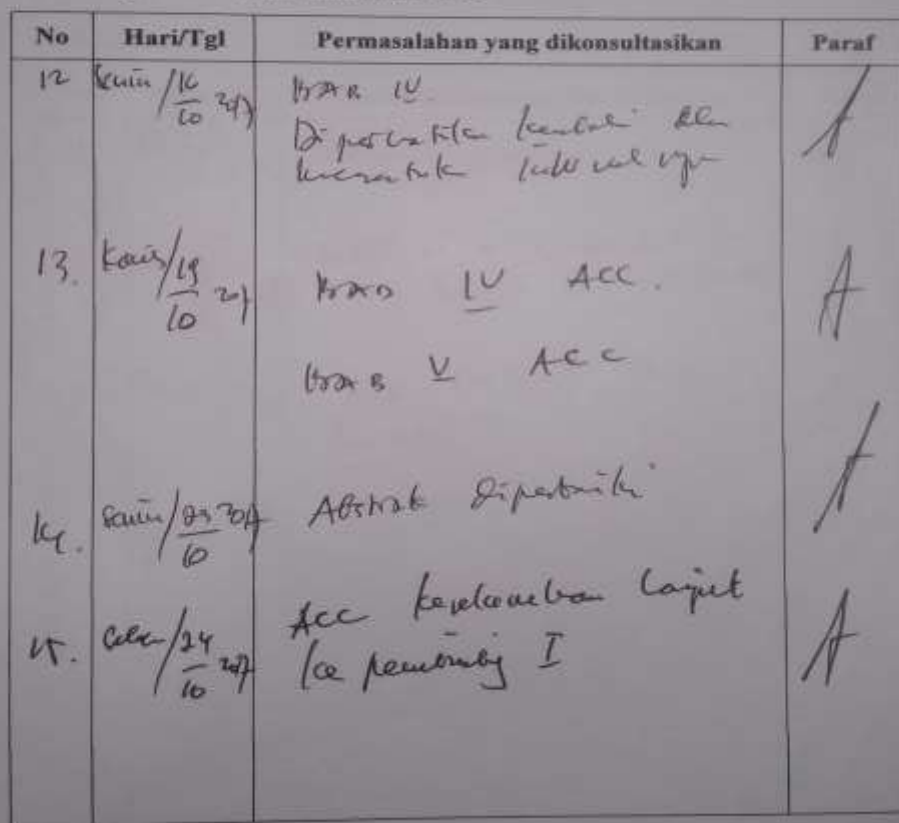 No Hari/Tgl Permasalahan yang dikonsultasikan Paraf
12 Senin/16/10 2017 BAB IV.
Diperhatikan kembali
13. Kamis/19/10 2017 BAB IV ACC.
BAB V ACC
14. Senin/23/10 2017 Abstrak diperbaiki
15. Selasa/24/10 2017 Acc keseluruhan lanjut
ke pembimbing I